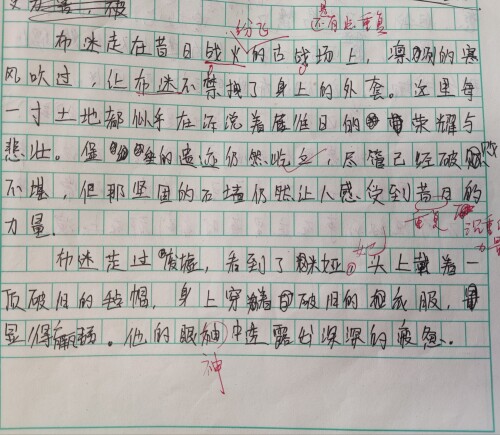 纷飞 还有些重复
布迷走在昔日战火的古战场上，凛冽的寒
风吹过，让布迷不禁换了身上的外套。这里每
一寸土地都似乎在诉说着往日的荣耀与
悲壮。堡垒的遗迹仍然屹立，尽管已经破
不堪，但那坚固的石墙仍然让人感受到昔日的
力量。
重复
力量
布迷走过废墟，看到了咪娅。头上戴着一
她
顶破旧的毡帽，身上穿着破旧的衣服，
显得疲弱。他的眼神中流露出深深的疲惫。
神